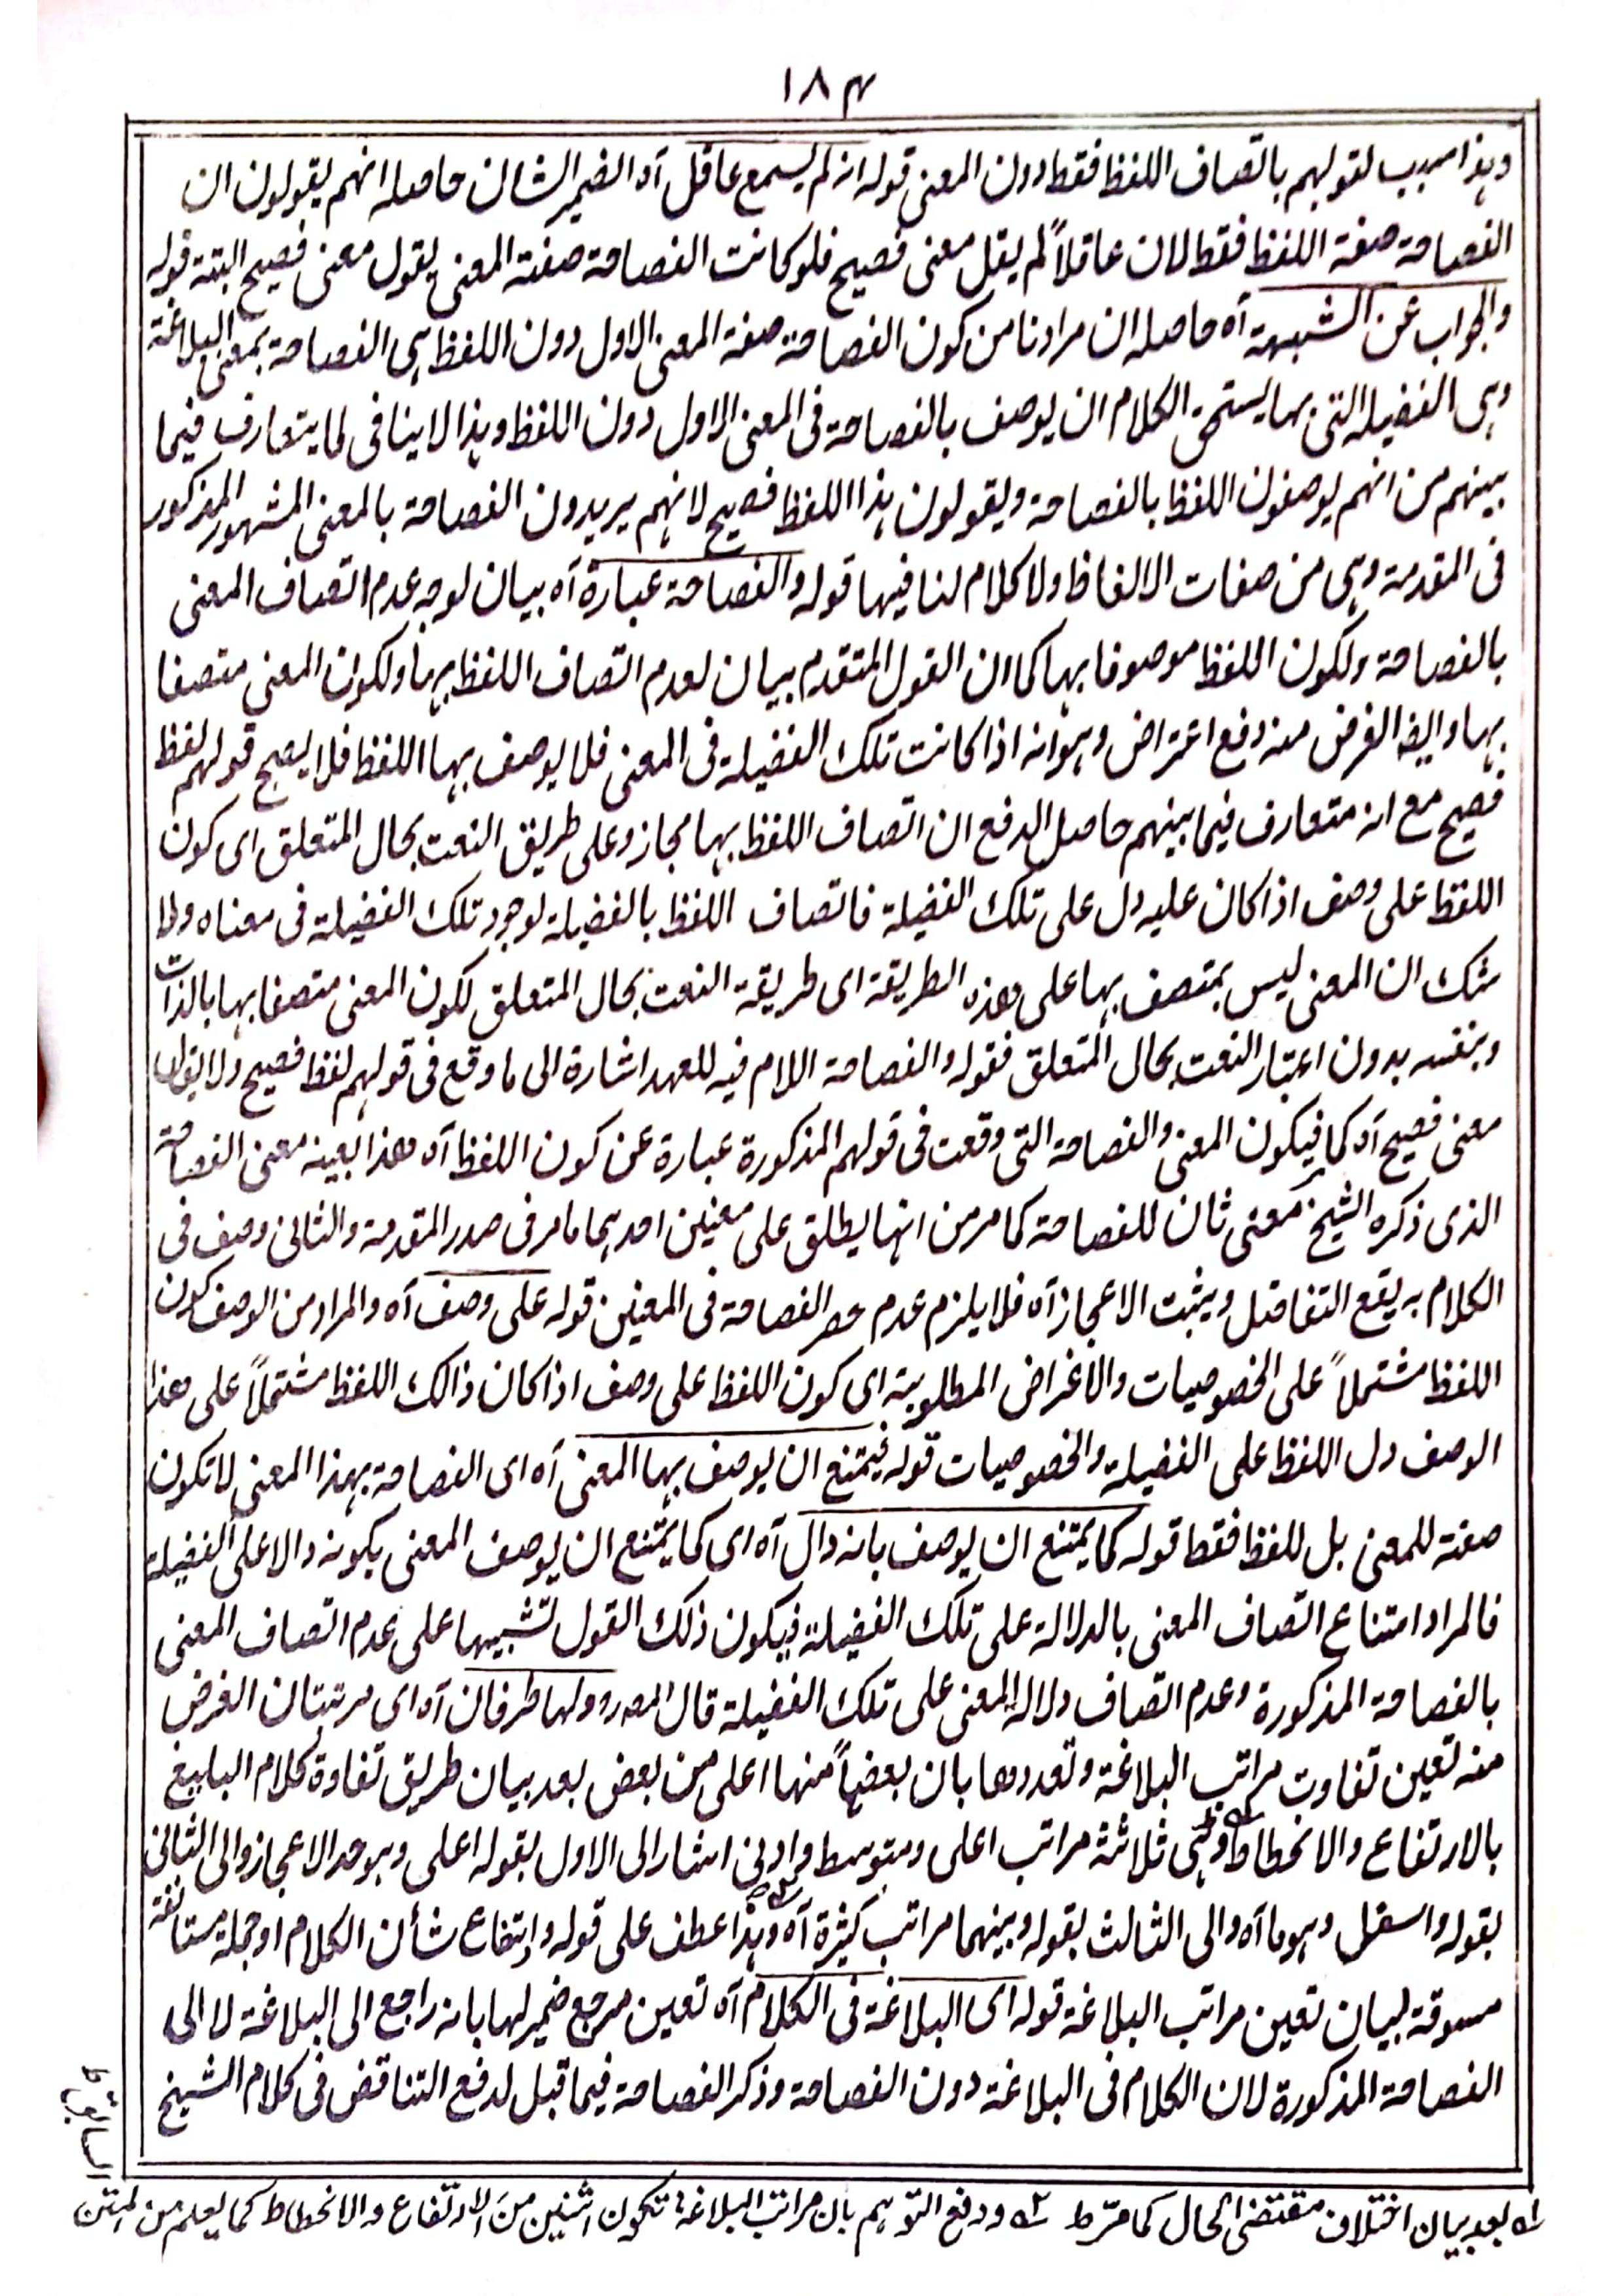 ۱۸۴
وہذا سبب لقولہم باتصاف اللفظ فقط دون المعنی قولہ انہ لم یسمع عاقل آہ الضمیر الشان حاصلہ انہم یقولون ان
الفصاحۃ صفۃ اللفظ فقط لان عاقلاً لم یقل معنی فصیح فلو کانت الفصاحۃ صفۃ المعنی یقول معنی فصیح البتۃ قولہ
والجواب عن الشبہۃ آہ حاصلہ ان مرادنا من کون الفصاحۃ صفۃ المعنی الاول دون اللفظ ہی الفصاحۃ بمعنی البلاغۃ
وہی الفضیلہ التی بہا یستحق الکلام ان یوصف بالفصاحۃ فی المعنی الاول دون اللفظ وہذا لا ینافی لما یتعارف فیما
بینہم من انہم یوصفون اللفظ بالفصاحۃ ویقولون ہذا اللفظ فصیح لانہم یریدون الفصاحۃ بالمعنی المشہور المذکور
فی المقدمۃ وہی من صفات الالفاظ ولا کلام لنا فیہا قولہ والفصاحۃ عبارۃ آہ بیان لوجہ عدم اتصاف المعنی
بالفصاحۃ ولکون اللفظ موصوفا بہا کما ان القول المتقدم بیان لعدم اتصاف اللفظ بہا ولکون المعنی متصفا
بہا وایضا الغرض منہ دفع اعتراض وہو انہ اذا کانت تلک الفضیلۃ فی المعنی فلا یوصف بہا اللفظ فلا یصح قولہم لفظ
فصیح مع انہ متعارف فیما بینہم حاصل الدفع ان اتصاف اللفظ بہا مجاز وعلی طریق النعت بحال المتعلق ای کون
اللفظ علی وصف اذا کان علیہ دل علی تلک الفضیلۃ فاتصاف اللفظ بالفضیلۃ لوجود تلک الفضیلۃ فی معناہ ولا
شک ان المعنی لیس بمتصف بہا علی ھذہ الطریقۃ ای طریقۃ النعت بحال المتعلق لکون المعنی متصفا بہا بالذات
وبنفسہ بدون اعتبار النعت بحال المتعلق فقولہ والفصاحۃ اللام فیہ للعہد اشارۃ الی ما وقع فی قولہم لفظ فصیح ولا یقولون
معنی فصیح آہ کما فیکون المعنی والفصاحۃ التی وقعت فی قولہم المذکورۃ عبارۃ عن کون اللفظ آہ ھذا بعینہ معنی الفصاحۃ
الذی ذکرہ الشیخ معنی ثان للفصاحۃ کما مر من انہا یطلق علی معنین احدہما ما مر فی صدر المقدمۃ والثانی وصف فی
الکلام بہ یقع التفاضل ویثبت الاعجاز آہ فلا یلزم عدم حصر الفصاحۃ فی المعنین قولہ علی وصف آہ والمراد من الوصف کون
اللفظ مشتملاً علی الخصوصیات والاغراض المطلوبۃ ای کون اللفظ علی وصف اذا کان ذالک اللفظ مشتملاً علی ھذا
الوصف دل اللفظ علی الفضیلۃ والخصوصیات قولہ فیمتنع ان یوصف بہا المعنی آہ ای الفصاحۃ بہذا المعنی لا تکون
صفۃ للمعنی بل للفظ فقط قولہ کما یمتنع ان یوصف بانہ دال آہ ای کما یمتنع ان یوصف المعنی بکونہ دالا علی الفضیلۃ
فالمراد امتناع اتصاف المعنی بالدلالۃ علی تلک الفضیلۃ فیکون ذلک القول تشبیہا علی عدم اتصاف المعنی
بالفصاحۃ المذکورۃ وعدم اتصاف دلالۃ المعنی علی تلک الفضیلۃ قال المصر ولہا طرفان آہ ای مرتبتان الغرض
منہ تعین تفاوت مراتب البلاغۃ وتعددھا بان بعضہاً منہا اعلی من بعض بعد بیان طریق تفاوۃ کلام البلیغ
بالارتفاع والانحطاط وہی ثلاثۃ مراتب اعلی ومتوسط وادنی اشار الی الاول بقولہ اعلی وہو حد الاعجاز والی الثانی
بقولہ واسفل وہو ما آہ والی الثالث بقولہ وبینہما مراتب کثیرۃ آہ وہذا عطف علی قولہ وارتفاع شأن الکلام او جملۃ مستانفۃ
مسوقۃ لبیان تعین مراتب البلاغۃ قولہ ای البلاغۃ فی الکلام آہ تعین مرجع ضمیر لہا بانہ راجع الی البلاغۃ لا الی
الفصاحۃ المذکورۃ لان الکلام فی البلاغۃ دون الفصاحۃ وذکر الفصاحۃ فیما قبل لدفع التناقض فی کلام الشیخ
السابق ط
لہ بعد بیان اختلاف مقتضی الحال کما مرّ ط ۲ہ ودفع التوہم بان مراتب البلاغۃ تکون اثنین من الارتفاع والانحطاط کما یعلم من المتن